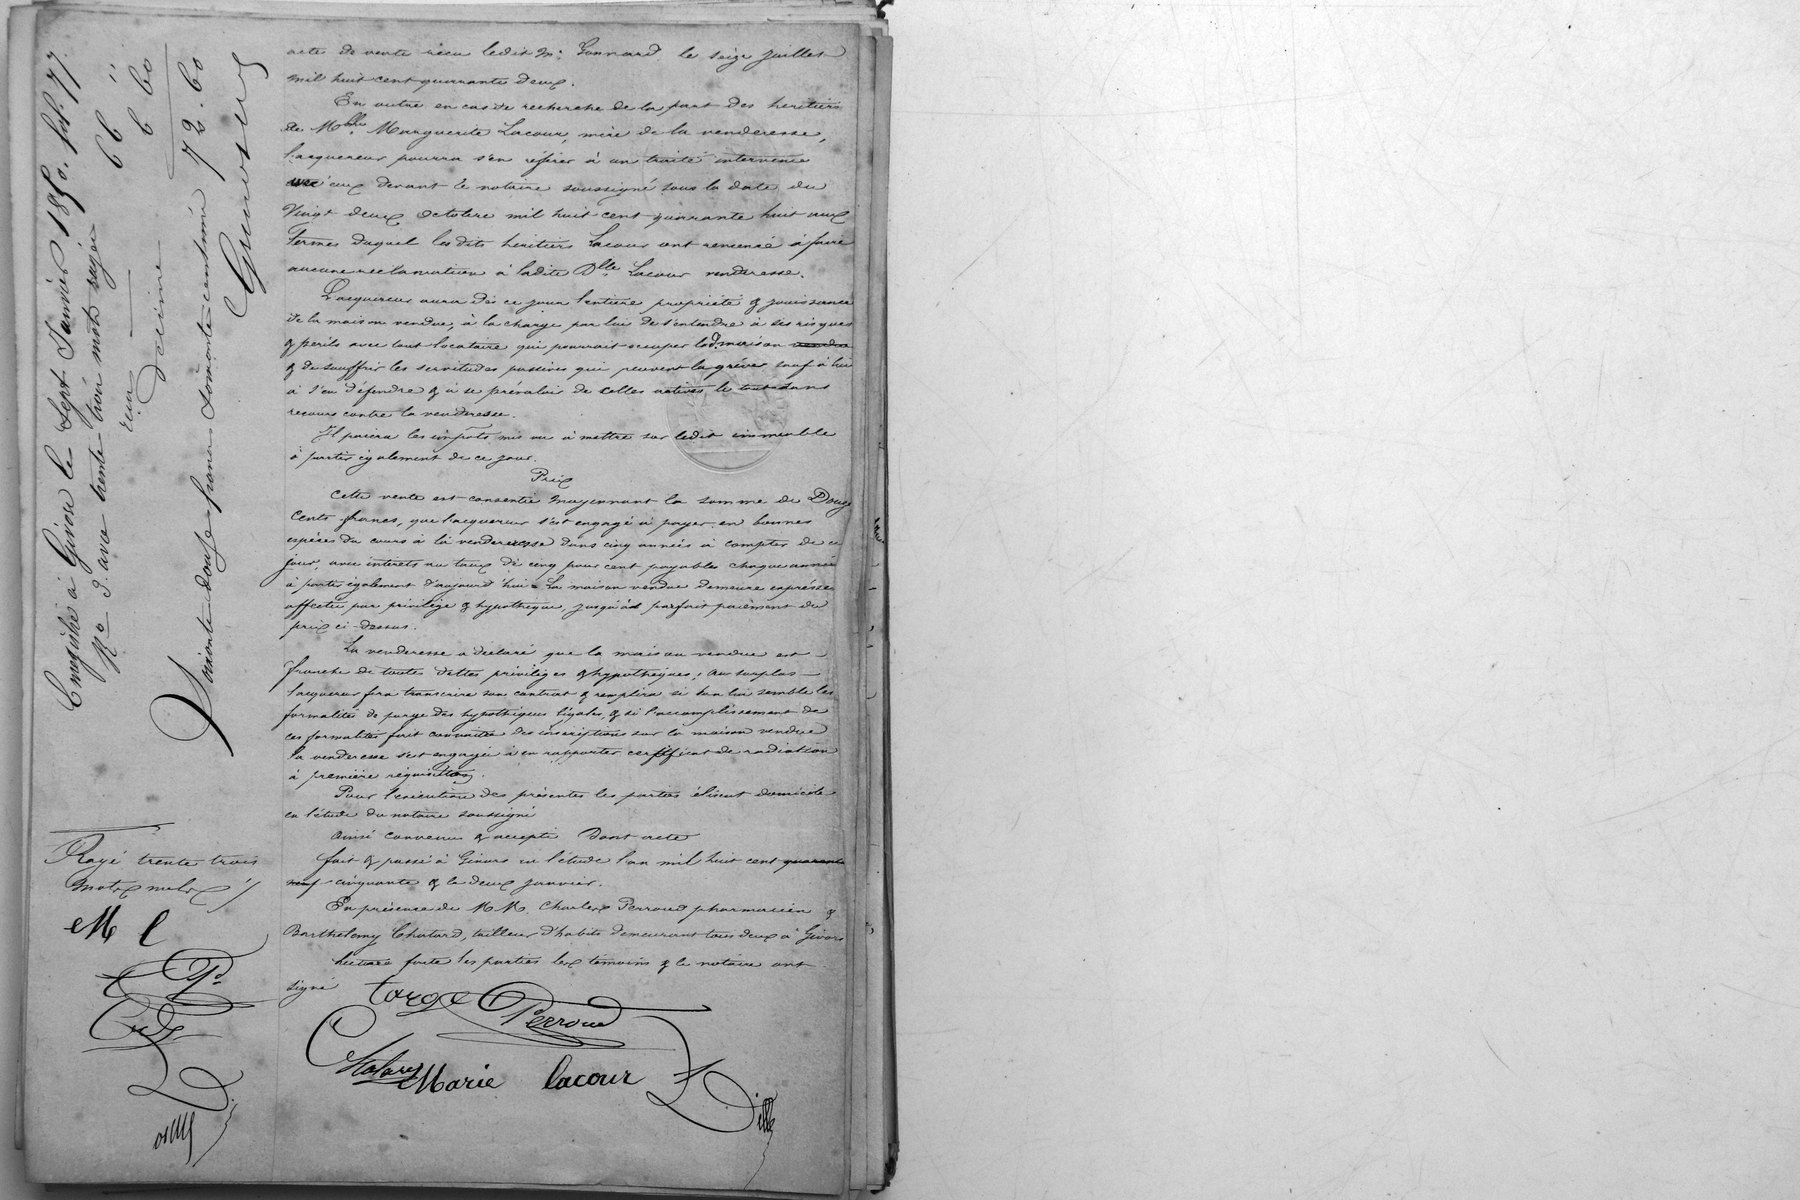 acte de vente reçu ledit Me Gonnard le seize juillet
mil huit cent quarante deux.
En outre en cas de recherche de la part des heritiers
de Mlle Marguerite Lacour, mère de la venderesse,
l'acquereur pourra s'en référer à un traité intervenu
avec eux devant le notaire soussigné sous la date du
Vingt deux octobre mil huit cent quarante huit aux
termes duquel les dits héritiers Lacour ont renoncé à faire
aucune réclamation à ladite Dlle Lacour venderesse.
L'acquereur aura dès ce jour l'entière propriété & jouissance
de la maison vendue, à la charge par lui de s'entendre à ses risques
& perils avec tout locataire qui pourrait occuper lad. maison vendue
& de souffrir les servitudes passives qui peuvent la grèver sauf à lui
à s'en défendre & à se prévaloir de celles actives le tout sans
recours contre la venderesse.
Il paiera les impots mis ou à mettre sur ledit immeuble
à partir également de ce jour.
Prix
Cette vente est consentie moyennant la somme de Douze
Cents francs, que l'acquereur s'est engagé à payer en bonnes
espèces du cours à la venderesse dans cinq années à compter de ce
jour, avec intérets au taux de cinq pour cent payables chaque année
à partir également d'aujourd'hui = La maison vendue demeure expressément
affectée par privilége & hypothèque, jusqu'au parfait paiement du
prix ci-dessus.
La venderesse a déclaré que la maison vendue est
franche de toutes dettes priviléges & hypothèques; au surplus
l'acquereur fera transcrire son contrat & remplira si bon lui semble les
formalités de purge des hypothèques légales, & si l'accomplissement de
ces formalités fait connaitre des inscriptions sur la maison vendue
la venderesse s'est engagée à en rapporter certificat de radiation
à première réquisition.
Pour l'exécution des présentes les parties élisent domicile
en l'étude du notaire soussigné
Ainsi convenu & accepté Dont acte
fait & passé à Givors en l'étude l'an mil huit cent quarante
neuf cinquante & le deux janvier.
En présence de MM. Charles Perroud pharmacien &
Barthelemy Chatard, tailleur d'habits demeurant tous deux à Givors
Lecture faite les parties les témoins & le notaire ont
signé
Targe Perroud
Chatard Marie Lacour
Dille
Enregistré à Givors le Sept Janvier 1850. fol. 77.
Ro 3. avec trente trois mots rayés 66 "
Reçu
Décime 6 60
Soixante douze francs soixante centimes 72.60
Rayé trente trois
mots nuls
M L
P.